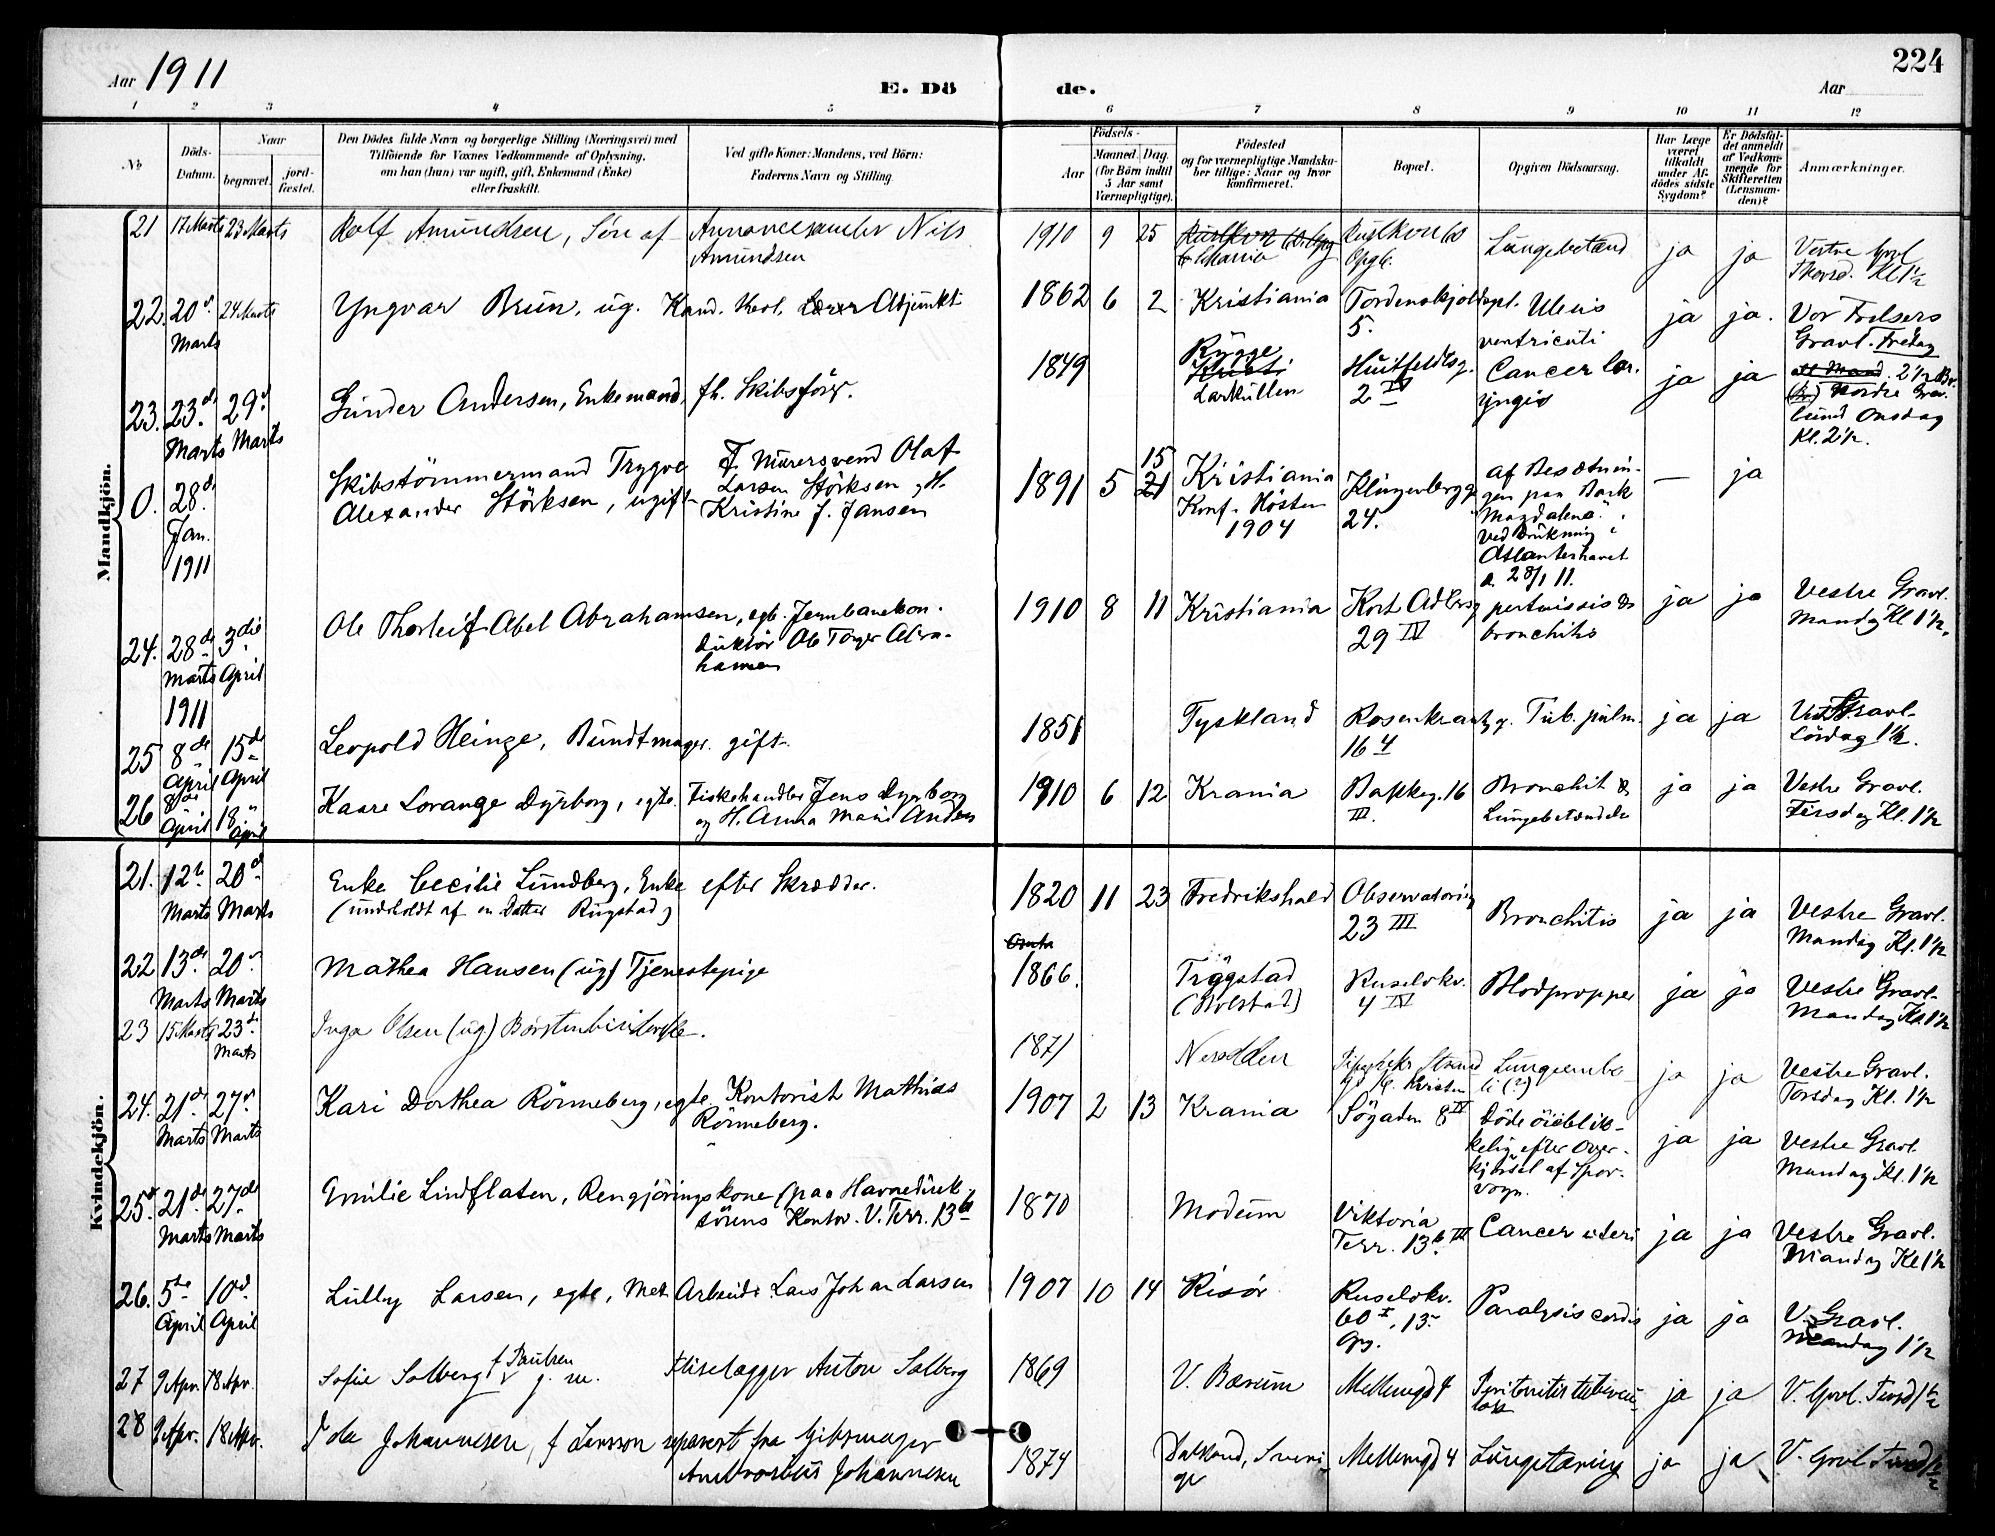 Aar 1911
E. Dö
de.
224
Aar
1 2 3 4 5 6 7 8 9 10 11 12
No
Döds-
Datum.
Naar
begravet.
jord-
fæstet.
Den Dödes fulde Navn og borgerlige Stilling (Næringsvei) med
Tilföiende for Voxnes Vedkommende af Oplysning,
om han (hun) var ugift, gift, Enkemand (Enke)
eller fraskilt.
Ved gifte Koner: Mandens, ved Börn:
Faderens Navn og Stilling.
Födsels-
Aar
Maaned. Dag.
(for Börn indtil
5 Aar samt
Værnepligtige).
Födested
og for værnepligtige Mandska-
ber tillige: Naar og hvor
konfirmeret.
Bopæl.
Opgiven Dödsaarsag.
Har Læge
været
tilkaldt
under Af-
dödes sidste
Sygdom?
Er Dödsfal-
det anmeldt
af Vedkom-
mende for
Skifteretten
(Lensman-
den)?
Anmærkninger.
Mandkjön.
21 17 Marts 23 Marts Rolf Amundsen, Sön af Annoncesamler Nils
Amundsen
1910 9 25
Ruslkvn 60
Opg 6.
Lungebetænd ja ja Vestre Gravl
Kl 1½
22. 20de Marts 24 Marts Yngvar Brun, ug. Kand. theol. Adjunkt
1862 6 2 Kristiania Tordenskjoldspl.
5.
Ulcus
ventriculi
ja ja. Vor Frelsers
Gravl. Fredag
23. 23de Marts 29de Marts Gunder Andersen, Enkemand, fh. Skibsförer.
1849 Rygge
Larkullen
Huitfeldtsg.
2 IV
Cancer lar.
yngis
ja ja
2½
Nordre Grav.
lund Onsdag
Kl. 2½.
O. 28de Jan. 1911
Skibstömmermand Trygve
Alexander Störksen, ugift
F. Murersvend Olaf
Larsen Störksen, H.
Kristine f. Jansen
1891 5 15 21 Kristiania
Konf. Hösten
1904
Klingenbergg
24.
af Besætnin-
gen paa Bark
"Magdalena"
ved Drukning i
Atlanterhavet
d. 28/1 11.
— ja
24. 28de Marts 1911 3die April
Ole Thorleif Abel Abrahamsen, egte. Jernbanekon-
duktör Ole Torger Abra-
hamsen
1910 8 11 Kristiania Kort Adlersg
29 IV
pertussis &
bronchitis
ja ja Vestre Gravl.
Mandag Kl 1½.
25 8de April 15de April
Leopold Heinze, Bundtmager. gift.
1851 Tyskland Rosenkrantzg.
16 4
Tub. pulm. ja ja Vest. Gravl.
Lördag 1½.
26 8de April 18 April
Kaare Lorange Dyrborg, egte. Fiskehandler Jens Dyrborg
og H. Anna Marie Anders
1910 6 12 Krania Bakkeg. 16
III.
Bronchit &
Lungebetændelse
ja ja Vestre Gravl.
Tirsdag Kl. 1½
Kvindekjön.
21. 12te Marts 20de Marts
Enke Cecilie Lundberg, Enke efter Skrædder.
(underholdt af en Datter Rugstad)
1820 11 23 Fredrikshald Observatorieg
23 III
Bronchitis ja ja Vestre Gravl.
Mandag Kl. 1½
22 13de Marts 20de Marts
Mathea Hansen (ug) Tjenestepige
1866. Tryggstad
(Holstad)
Ruselökv.
4 IV
Blodpropper ja ja Vestre Gravl.
Mandag Kl. 1½
23 15 Marts 23de Marts
Inga Olsen (ug) Börstenbinderske.
1871 Nesodden
Lungeembo-
li (?)
ja ja Vestre Gravl.
Torsdag Kl. 1½
24. 21de Marts 27de Marts
Kari Dorthea Rönneberg, egte. Kontorist Mathias
Rönneberg.
1907 2 13 Krania Sögaden 8 IV
Döde öieblik-
kelig efter over-
kjörsel af Spor-
vogn.
ja ja Vestre Gravl.
Mandag Kl. 1½
25de 21de Marts 27de Marts
Emilie Lindflaten, Rengjöringskone (paa Havnedirek-
törens Kontor. V. Terr. 13b
1870 Modum Viktoria
Terr. 13b III
Cancer uteri ja ja Vestre Gravl.
Mandag Kl 1½
26. 5te April 10de April
Lully Larsen, egte, Met Arbeider Lars Johan Larsen
1907 10 14 Risör Ruselökv.
60 I, 13
Opg.
Paralysis cordis ja ja V. Gravl.
Mandag 1½
27 9 Apr. 18 Apr.
Sofie Solberg f. Paulsen g. m. Fliselægger Anton Solberg
1869 V. Bærum Mellemgd 4
Peritonitis tubercu-
losa
ja ja V. Gravl. Tirsd 1½
28 9 Apr. 18 Apr.
Ida Johannesen, f Larsson separert fra Gibsmager
Ambrosius Johannesen
1874 Dalsland, Sveri-
ge
Mellemgd 4 Lungetæring ja ja V. Gravl. Tirsd 1½